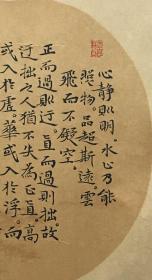 心静则明。水止乃能
照物品超斯遠。雲
飛而不礙空。
正而過則迂。直而過則拙。故
迂拙之人猶不失為正直。高
或入於虛華或入於浮。而